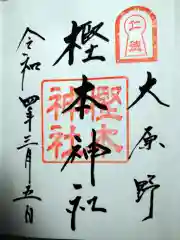 大原野
樫本神社
令和四年三月五日
樫本
神社